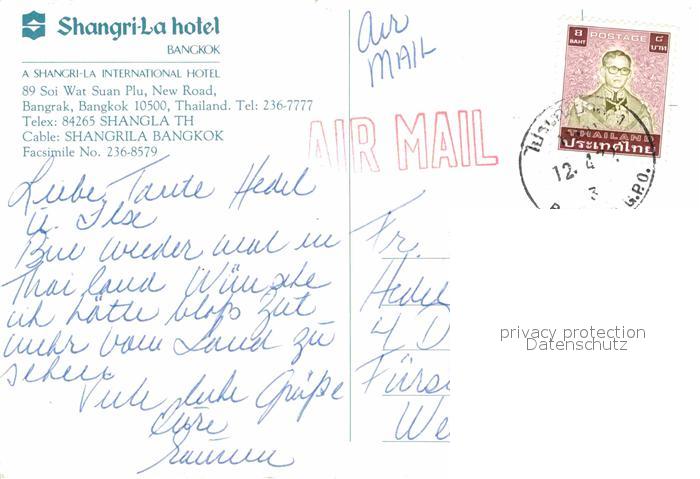 Shangri-La hotel
BANGKOK
A SHANGRI-LA INTERNATIONAL HOTEL
89 Soi Wat Suan Plu, New Road,
Bangrak, Bangkok 10500, Thailand. Tel: 236-7777
Telex: 84265 SHANGLA TH
Cable: SHANGRILA BANGKOK
Facsimile No. 236-8579
Air
MAIL
AIR MAIL
8 POSTAGE ๘
BAHT บาท
THAILAND
ประเทศไทย
12. 4
3
G.P.O.
Liebe Tante Hedel
u. Ilse
Bin wieder mal in
Thailand Wünsche
ich hätte bloss Zeit
mehr vom Land zu
sehen
Viele liebe Grüße
Eure
Fr.
Hedel
4 D
Fürs
We
privacy protection
Datenschutz